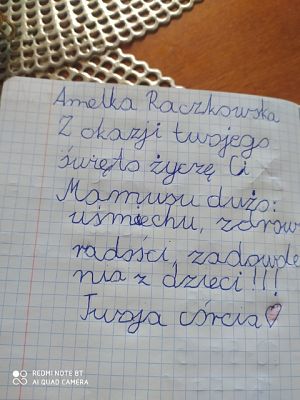 Amelka Raczkowska
Z okazji twojego
święto życzę Ci
Mamusu dużo:
uśmiechu, zdrow
radości, zadowole
nia z dzieci!!!
Twoja córcia
REDMI NOTE 8T
AI QUAD CAMERA